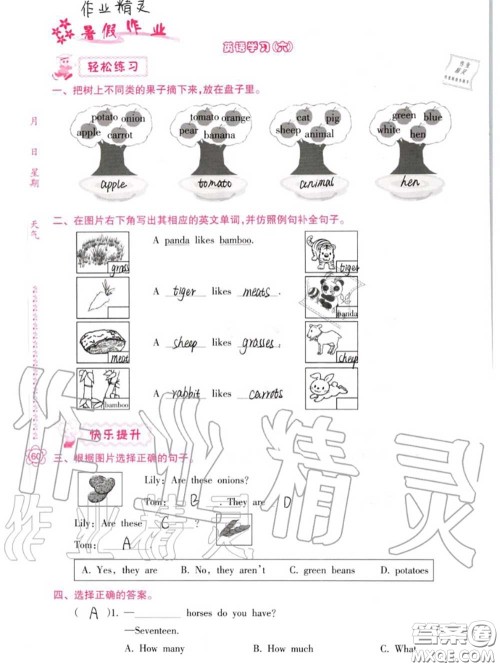 作业精灵
暑假作业
英语学习(六)
轻松练习
一、把树上不同类的果子摘下来,放在盘子里。
月 日 星期 天气
potato onion
apple carrot
tomato orange
pear banana
cat pig
sheep animal
green blue
white hen
apple tomato animal hen
二、在图片右下角写出其相应的英文单词,并仿照例句补全句子。
A panda likes bamboo.
grass tiger
A tiger likes meats.
panda
A sheep likes grasses.
meat sheep
A rabbit likes carrots
bamboo
快乐提升
60
三、根据图片选择正确的句子。
Lily: Are these onions?
Tom: B . They are D
Lily: Are these C ?
Tom: A
A. Yes, they are B. No, they aren't C. green beans D. potatoes
四、选择正确的答案。
( A )1. —________ horses do you have?
—Seventeen.
A. How many B. How much C. What
作业精灵
作业精灵
答案圈
MXQE.COM